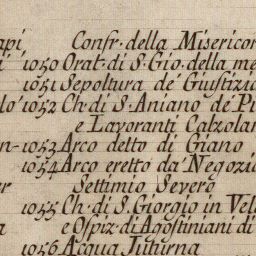 api, Confr. della Misericor
i 1050 Orat. di S. Gio. della me
1051 Sepoltura de' Giustizia
lo' 1052 Ch. di S. Aniano de' Pi
e Lavoranti Calzolar
n- 1053 Arco detto di Giano
1054 Arco eretto da' Negozia
er Settimio Severo
1055 Ch. di S. Giorgio in Vel
a e Ospiz. di Agostiniani di
1056 Acqua Juturna